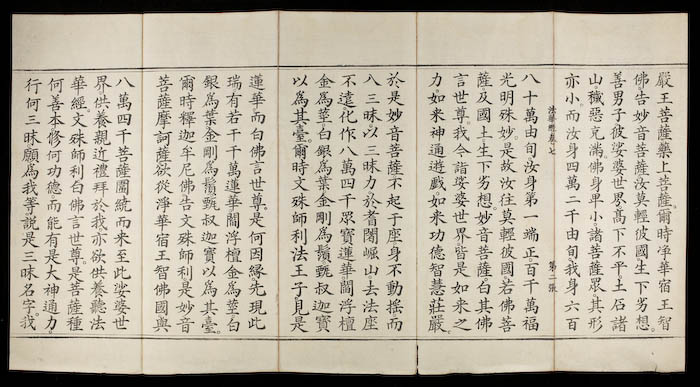 嚴王菩薩藥上菩薩。爾時淨華宿王智
佛告妙音菩薩汝莫輕彼國生下劣想。
善男子彼娑婆世界高下不平土石諸
山穢惡充滿佛身卑小諸菩薩眾其形
亦小而汝身四萬二千由旬我身六百
法華經卷七 第二張
八十萬由旬汝身第一端正百千萬福
光明殊妙是故汝往莫輕彼國若佛菩
薩及國土生下劣想妙音菩薩白其佛
言世尊我今詣娑婆世界皆是如來之
力。如來神通遊戲。如來功德智慧莊嚴。
於是妙音菩薩不起于座身不動搖而
入三昧以三昧力於耆闍崛山去法座
不遠化作八萬四千眾寶蓮華閻浮檀
金為莖白銀為葉金剛為鬚甄叔迦寶
以為其臺。爾時文殊師利法王子見是
蓮華而白佛言世尊。是何因緣先現此
瑞有若干千萬蓮華閻浮檀金為莖白
銀為葉金剛為鬚甄叔迦寶以為其臺。
爾時釋迦牟尼佛告文殊師利是妙音
菩薩摩訶薩欲從淨華宿王智佛國與
八萬四千菩薩圍繞而來至此娑婆世
界。供養親近禮拜於我。亦欲供養聽法
華經。文殊師利白佛言世尊。是菩薩種
何善本。修何功德而能有是大神通力。
行何三昧。願為我等說是三昧名字。我